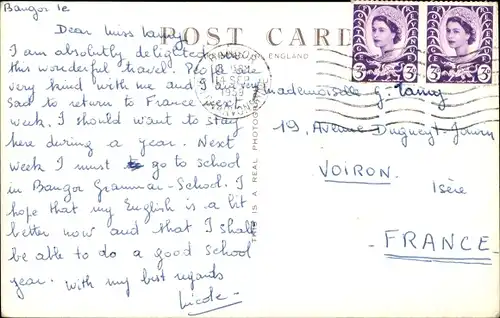 Bangor le
POST CARD
Dear Miss
I am absolutly delighted with
this wonderful travel. People are
very kind with me and I am very
sad to return to France next
week. I should want to stay
here during a year. Next
week I must go to school
in Bangor Grammar-School. I
hope that my English is a bit
better now and that I shall
be able to do a good school
year. With my best regards
Nicole
THIS IS A REAL PHOTOGRAPH
ENGLAND
3D 3D
Mademoiselle G.
19, Avenue Dugueyt-Jouvin
VOIRON.
Isère
- FRANCE -